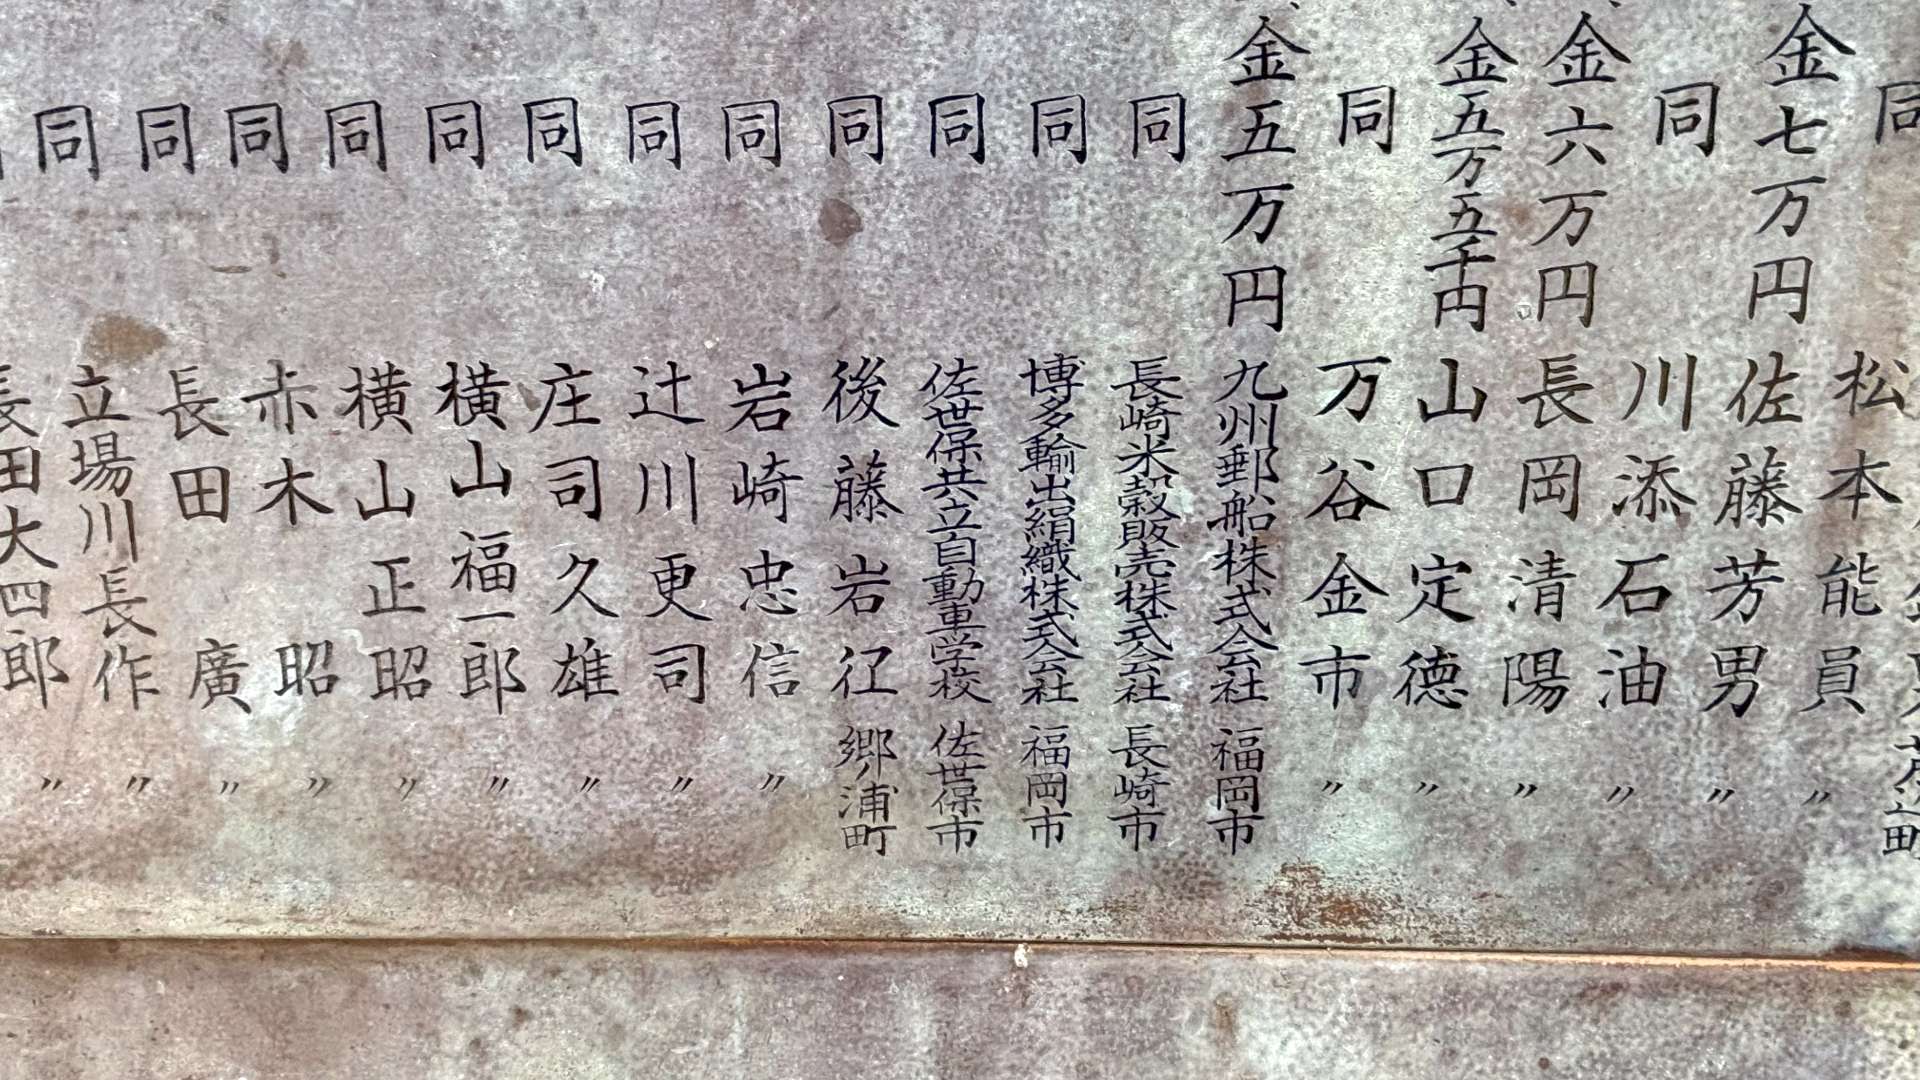 同 松本能員 〃
金七万円 佐藤芳男 〃
同 川添石油 〃
金六万円 長岡清陽 〃
金五万五千円 山口定徳 〃
同 万谷金市 〃
金五万円 九州郵船株式会社 福岡市
同 長崎米穀販売株式会社 長崎市
同 博多輸出絹織株式会社 福岡市
同 佐世保共立自動車学校 佐世保市
同 後藤岩径 郷ノ浦町
同 岩崎忠信 〃
同 辻川更司 〃
同 庄司久雄 〃
同 横山福一郎 〃
同 横山正昭 〃
同 赤木昭 〃
同 長田廣 〃
同 立場川長作 〃
同 長田大四郎 〃